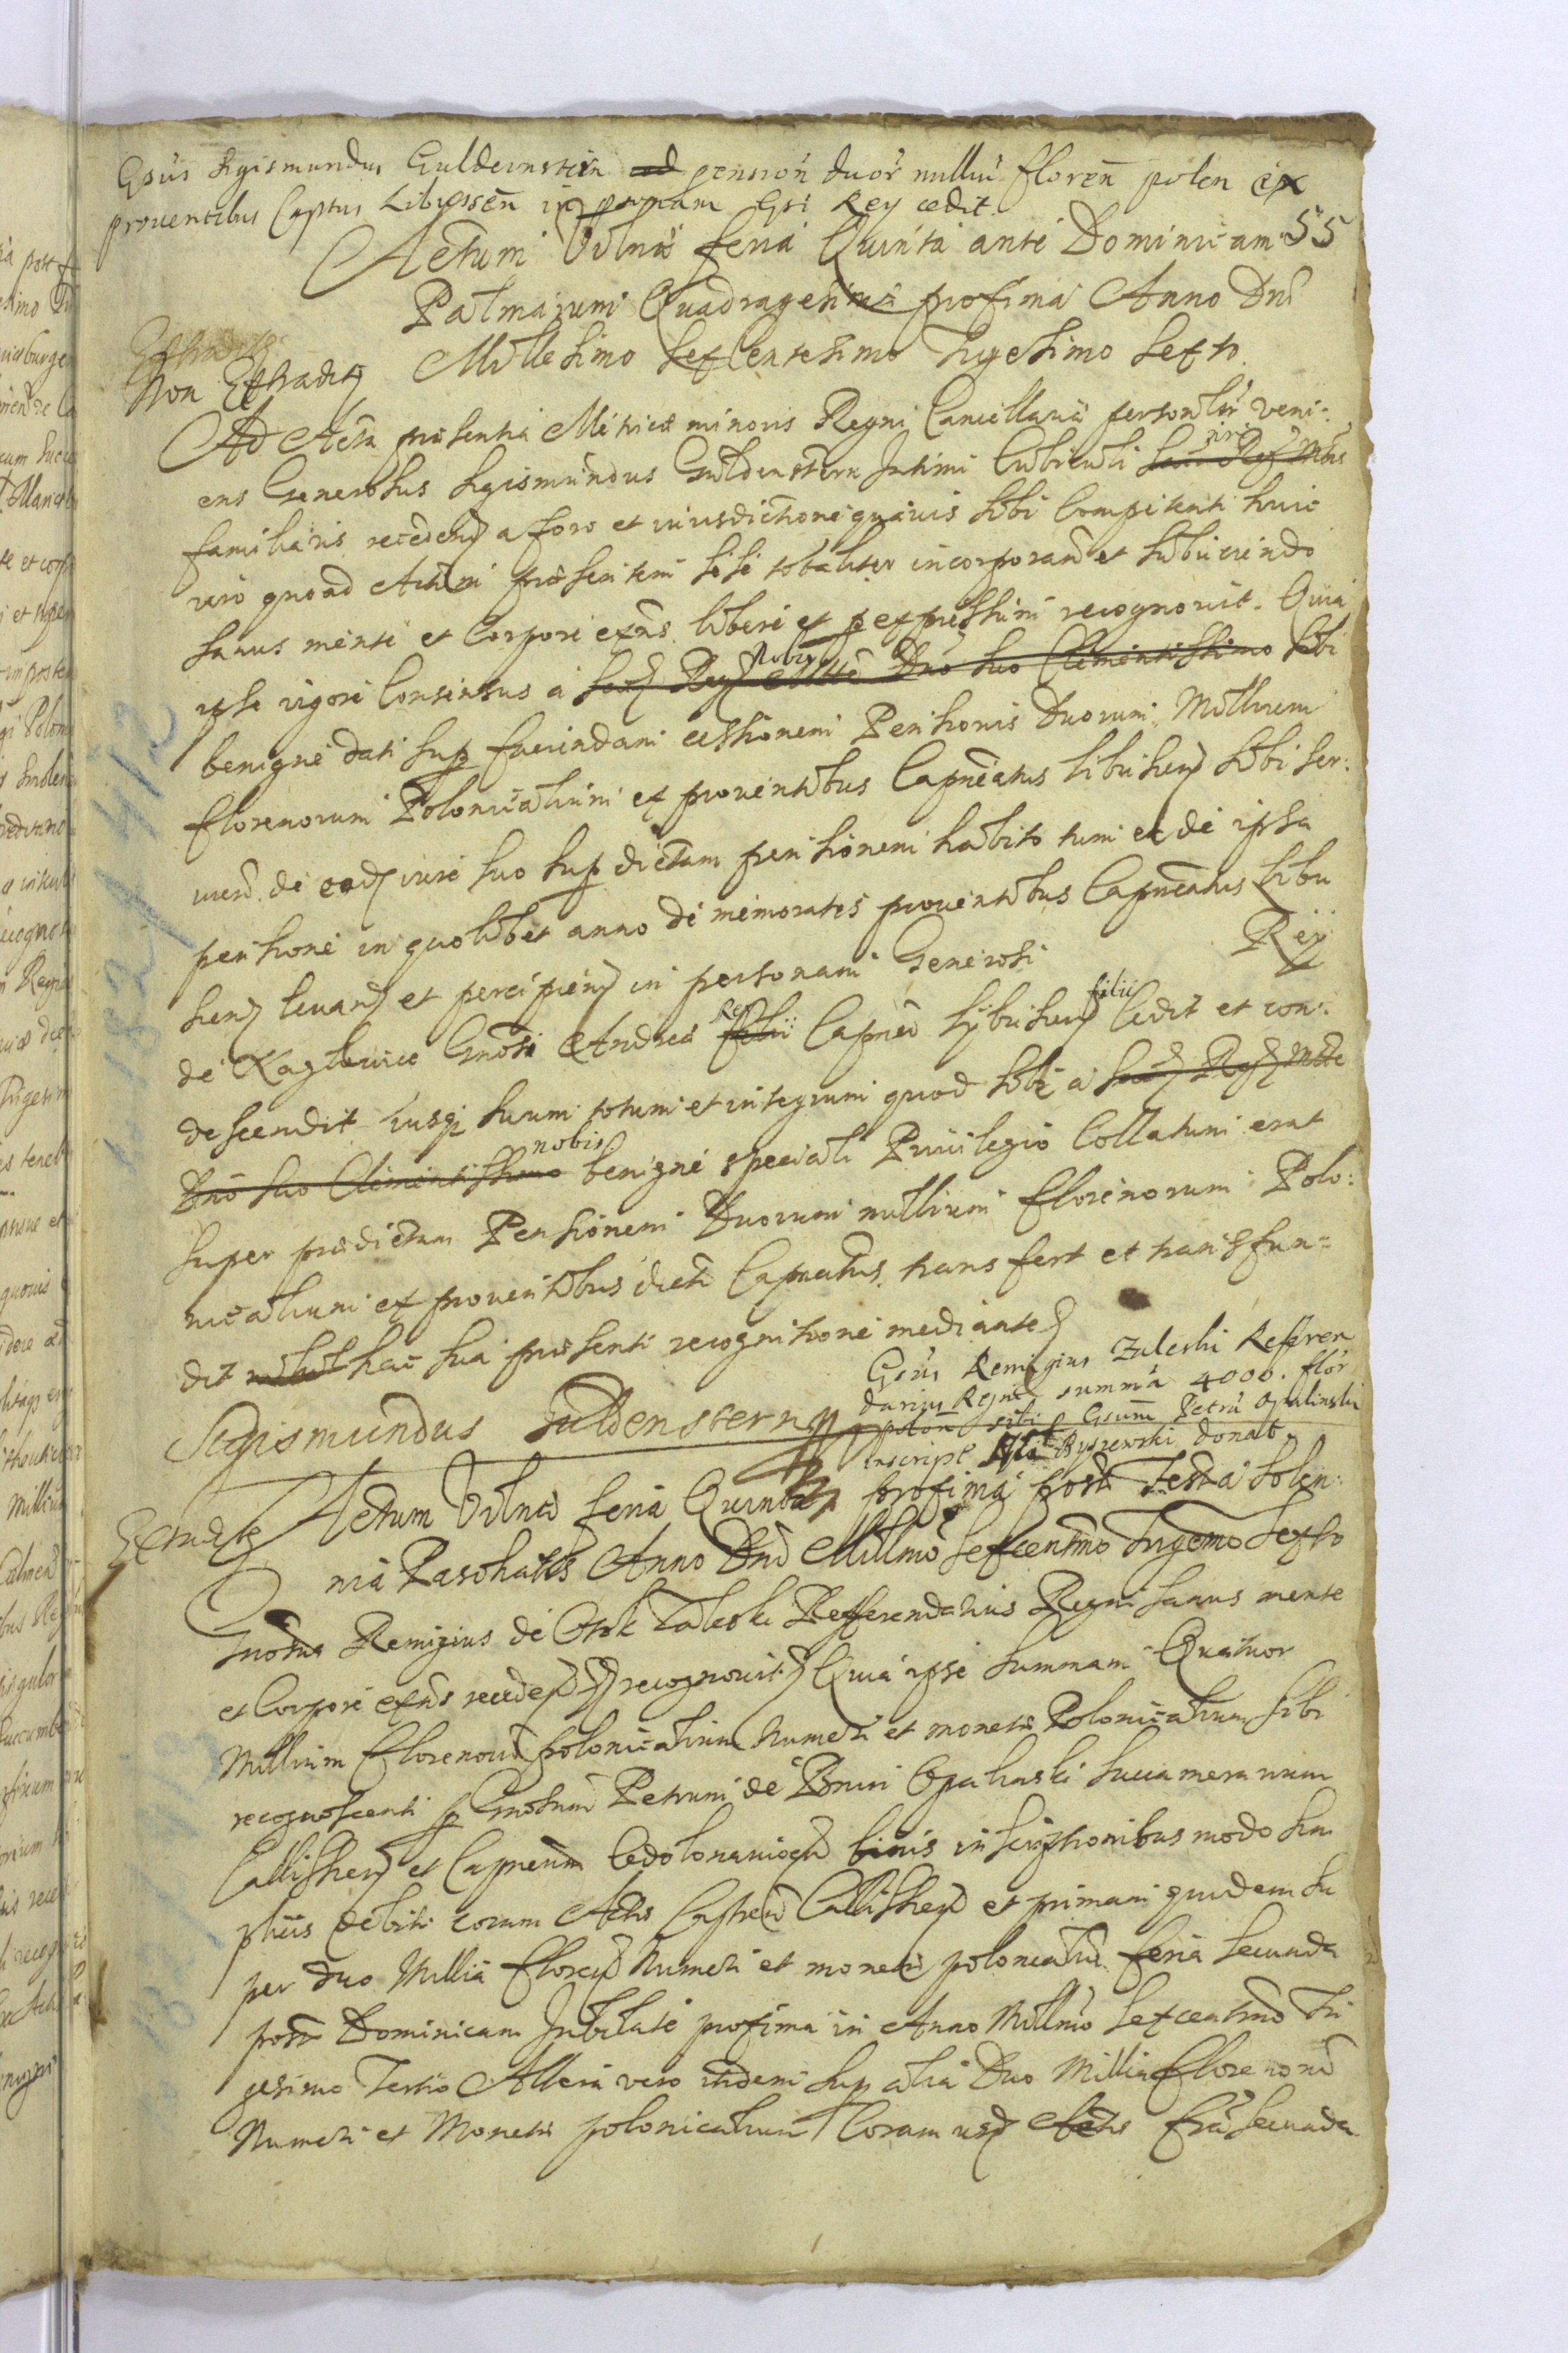 Gsus Sigismundus Guldernstern ad pension duor milliu floren polon ex
proventibus Captus Libussen in personam Gsi Rey cedit.
55
Actum Vilnae feria Quinta ante Dominicam
Palmarum Quadragesimae proxima Anno Dni
Millesimo Sexcentesimo Trigesimo Sexto.
Non Extradit
Ad Acta praesentia Metrices minoris Regni Cancellariae personlr veni-
ens Generosus Sigismundus Guldenstern Intimi Cubiculi Sacr Reg Mttis nri
familiaris recedend a foro et iurisdictione quavis sibi Competenti huic
vero quoad Actum praesentem sese totaliter incorporand et subiiciendo
sanus mente et Corpore exns libere et p expressum recognovit. Quia
ipse vigore Consensus a Sac Reg Mtte Dno suo Clementissimo Nobis sibi
benigne dati sup faciendam cessionem Pensionis Duorum Millium
florenorum Polonicalium ex proventibus Capneatus Libusen sibi ser-
vien. de eod iure suo sup dictam pensionem habito tum et de ipsa
pensione in quolibet anno de memoratis proventibus Capneatus Libu
sen levand et percipiend in personam Generosi Rey
de Naglowice Gnosi Andreae Rey filii Capnei Lybusen filii cedit et con-
descendit iusq suum totum et integrum quod sibi a Sac Reg Mtte
Dno suo Clementissimo nobis benigne speciali Privilegio Collatum erat
super praedictam Pensionem Duorum millium florenorum Polo-
nicalium ex proventibus dicti Capneatus, transfert et transfun-
dit hac sua praesenti recognitione mediante
Sigismundus Guldenstern
Gsus Remigius Zaleski Referen
darius Regni summa 4000. flor
polon sibi p Gsum Petru Opalinski
inscript Gso Ryszewski donat.
Extradit
Actum Vilnae feria Quinta proxima post Festa Solen-
nia Paschatis Anno Dni Millmo Sexcentmo Trigemo Sexto
Gnosus Remigius de Otok Zaleski Refferendarius Regni sanus mente
et Corpore exns recedend recognovit Quia ipse summam Quatuor
Millium florenorum polonicalium Numeri et monetae Polonicalium sibi
recognoscenti p Gnosum Petrum de Bnin Opalinski Succamerarium
Callishen et Capneum Odolanoviens binis inscriptionibus modo sim
plicis debiti coram Actis Castren Callishen et primam quidem su
per duo Millia floren Numeri et monetae polonicaliu feria secunda
post Dominicam Jubilate proxima in Anno Millmo Sexcentmo Tri
gesimo Tertio Altera vero itidem sup alia Duo Millia florenoru
Numeri et Monetae polonicalium Coram iisd Actis fria secunda